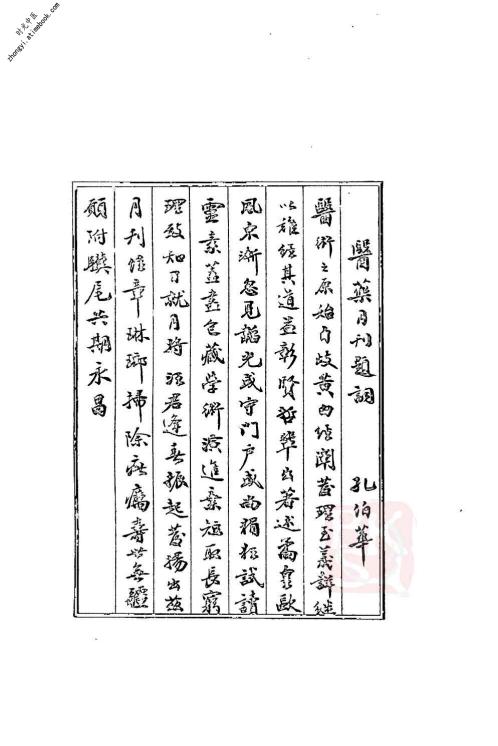 时光中医
zhongyi.atimebook.com
醫藥月刊題詞 孔伯華
醫術之原始自岐黃內經闡蘊理至義詳繼
以難經其道益彰賢哲輩出著述矞皇歐
風東漸忽見韜光或守門戶或尚猖狂試讀
靈素蓋盡包藏學術演進棄短取長窮
理致知日就月將 君逢春振起發揚出茲
月刊 章琳瑯掃除疵癘壽世無疆
願附驥尾共期永昌